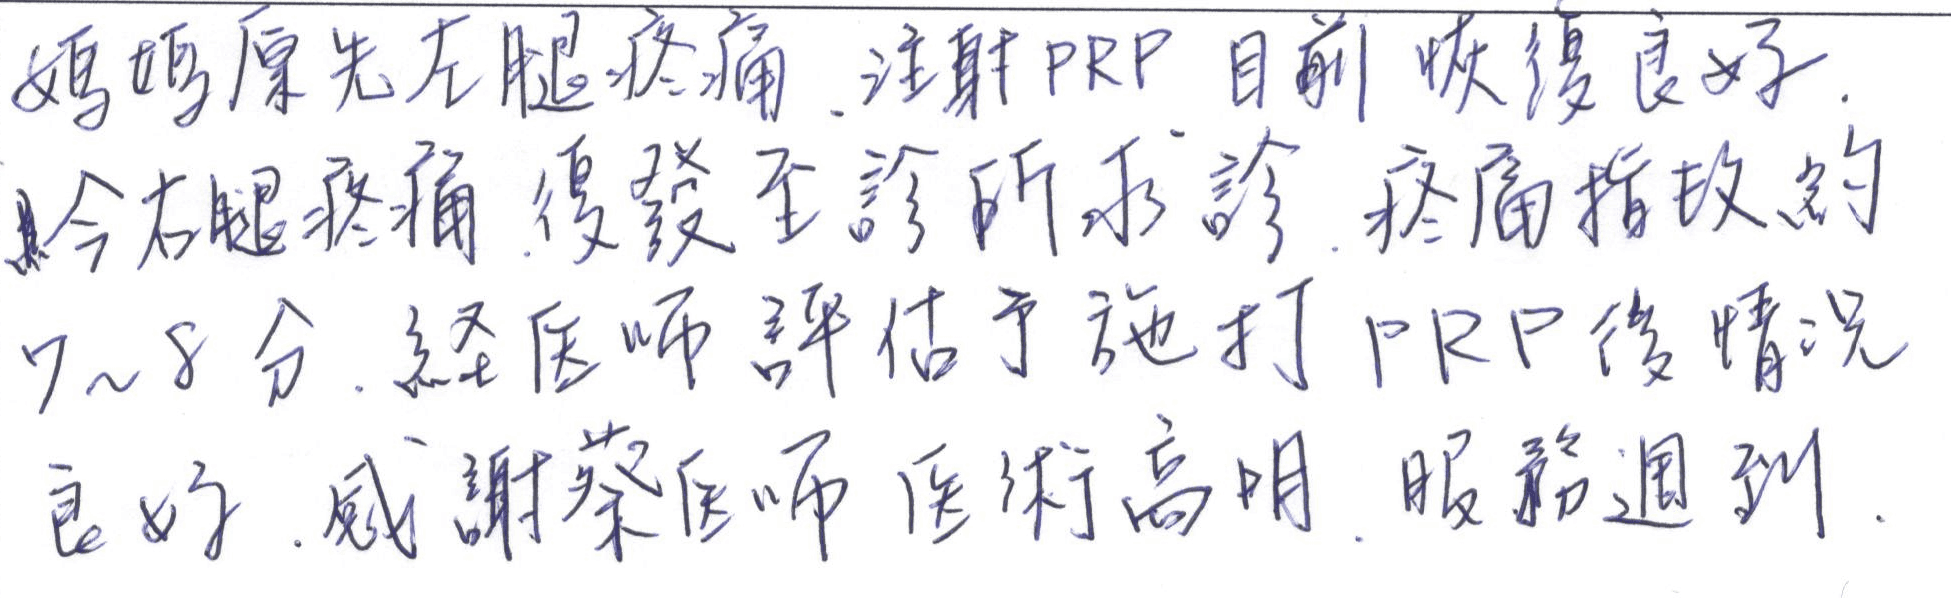 媽媽原先左腿疼痛.注射PRP 目前恢復良好.
今右腿疼痛.復發至診所求診.疼痛指故約
7~8分.経医师評估予施打PRP後情況
良好.感謝蔡医师医術高明.服務週到.